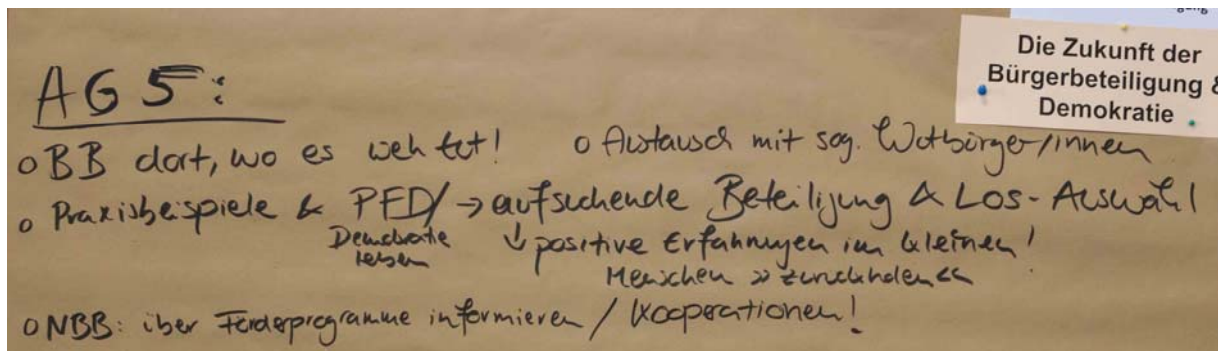 Die Zukunft der
Bürgerbeteiligung &
Demokratie
AG 5:
o BB dort, wo es weh tut! o Austausch mit sog. Wutbürger/innen
o Praxisbeispiele & PFD/ → aufsuchende Beteiligung & Los-Auswahl
Demokratie leben ↓ positive Erfahrungen im kleinen!
Menschen »zurückholen«
o NBB: über Förderprogramme informieren / Kooperationen!